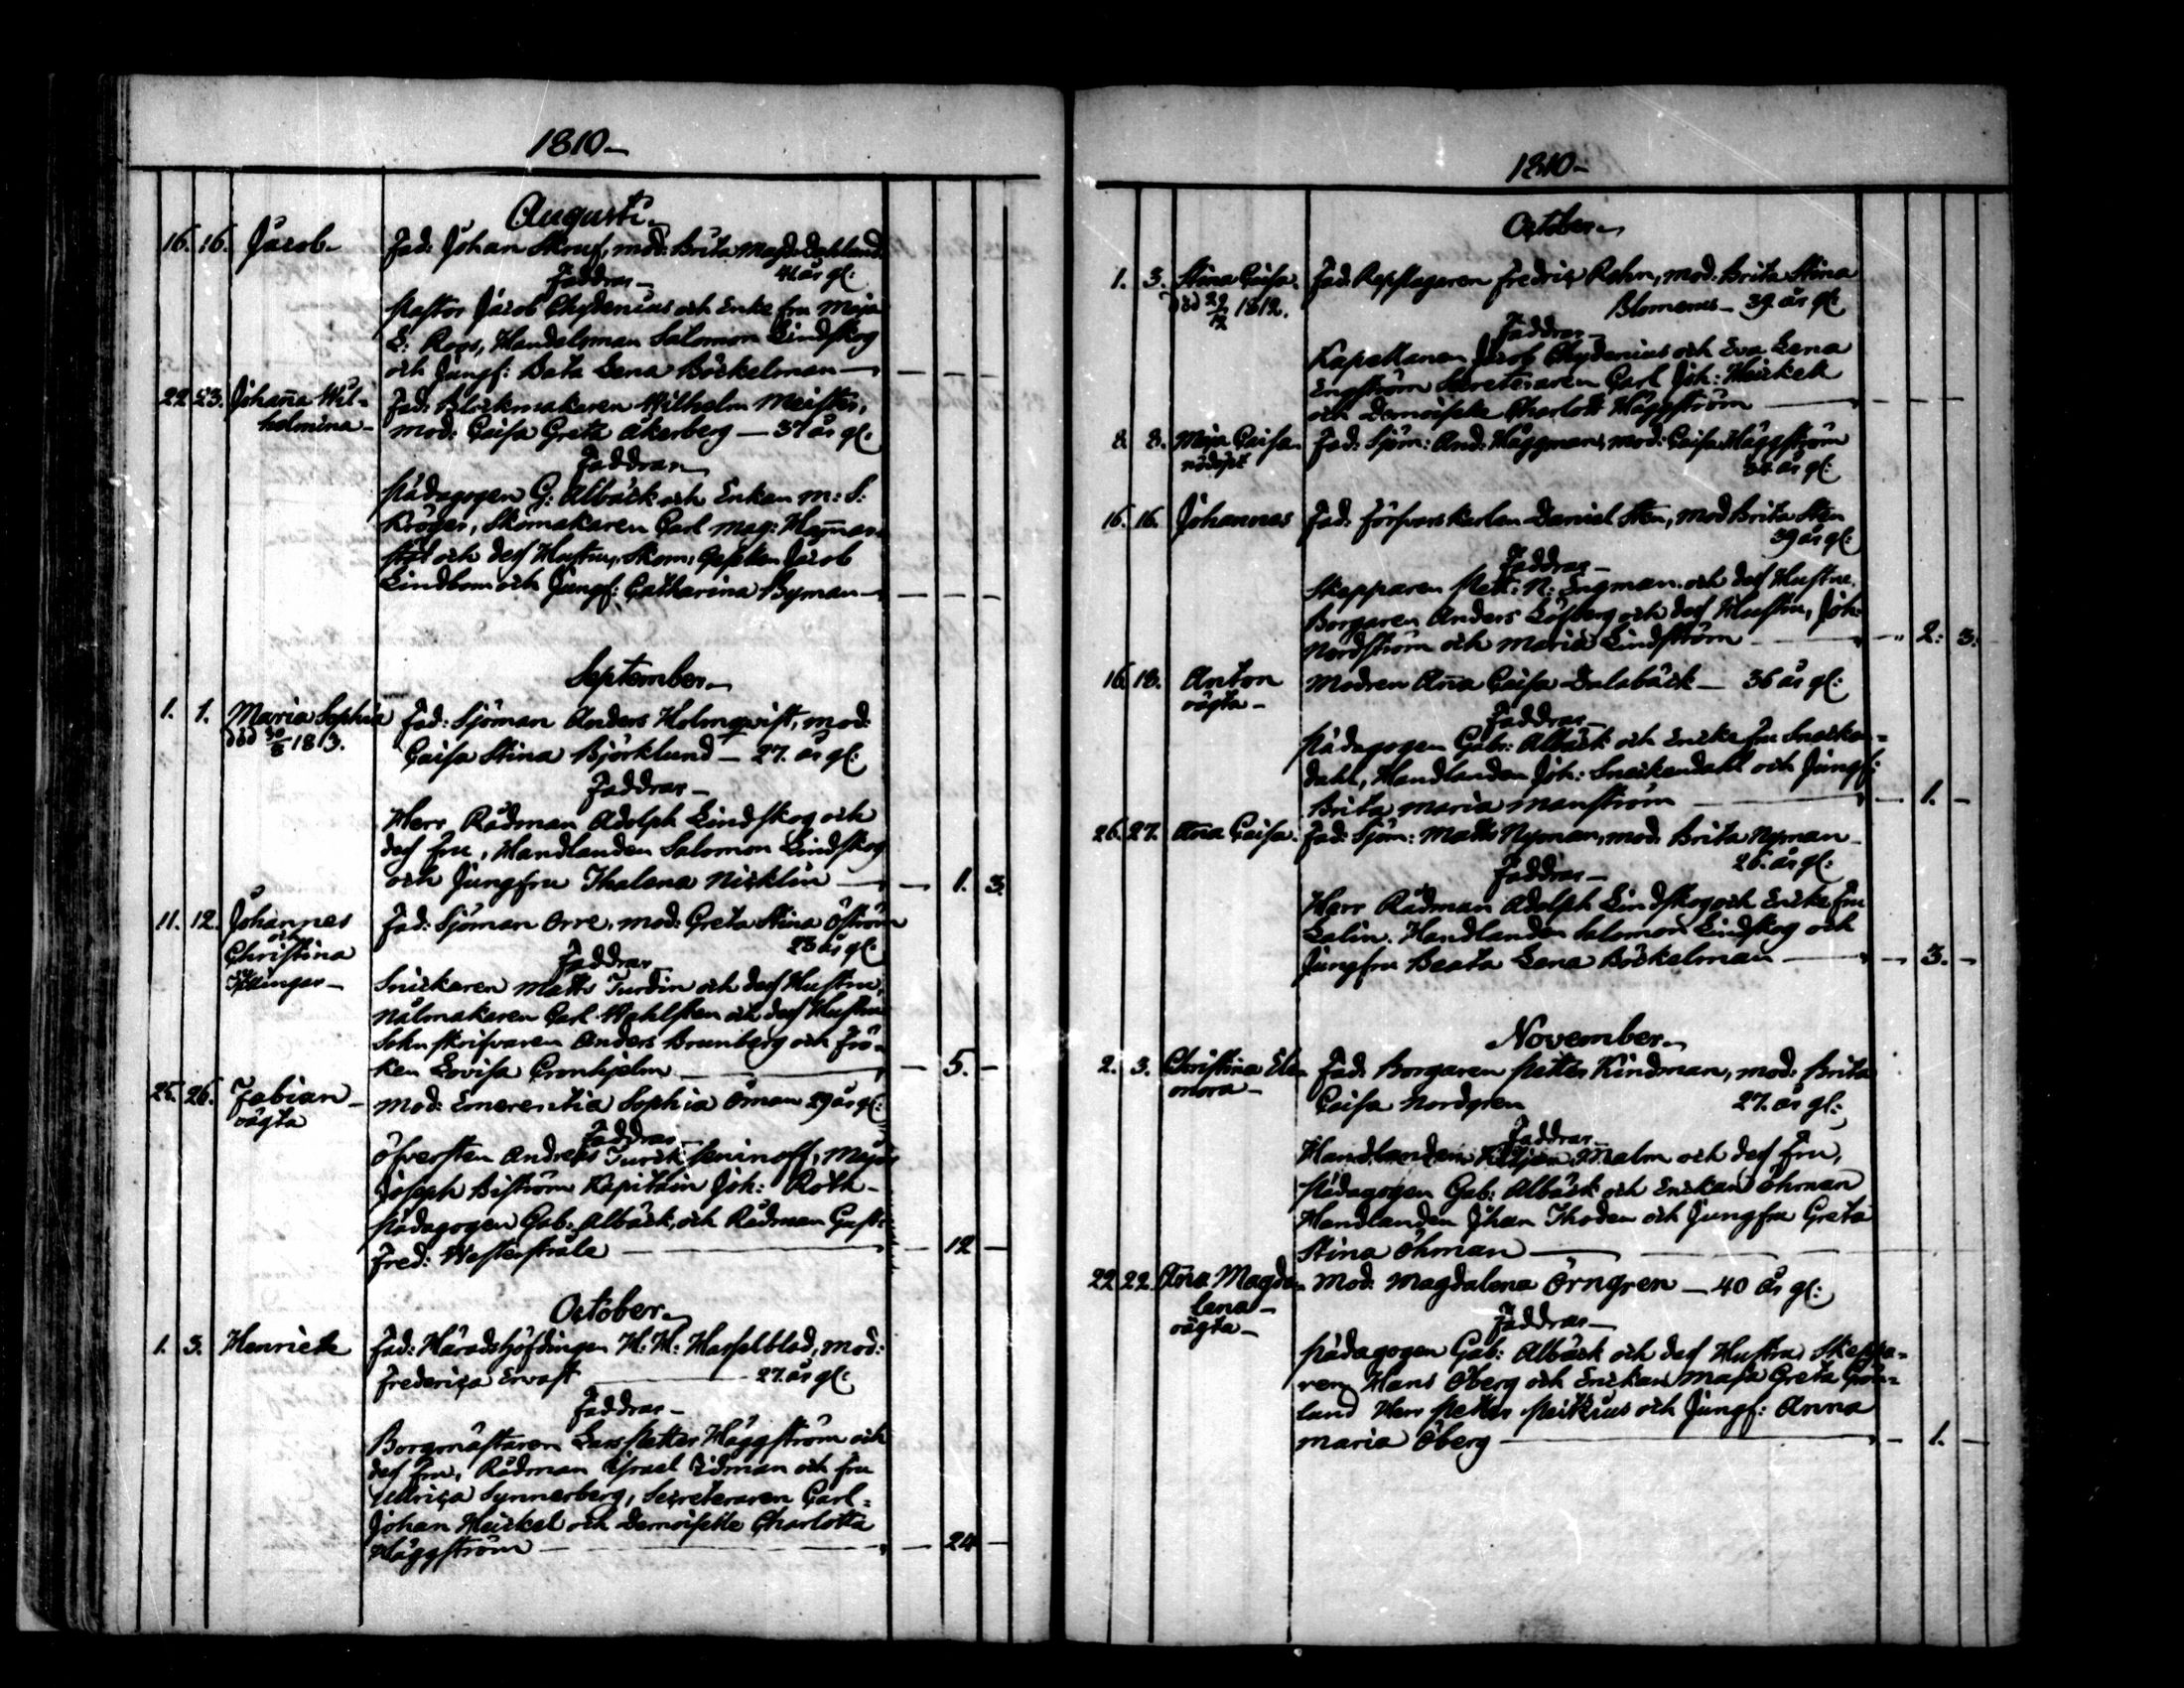 1810 —
Augusti —
16. 16. Jacob — Fad: Johan Skruf, mod: Brita Magd: Dahlund
41. år gl:
Faddrar —
Pastor Jacob Chydenius och Enke fru Maja
E: Roos, Handelsman Salomon Lindskog
och Jungf: Beta Lena Böckelman — — — —
22 23. Johan̄a Wil= Fad: Blockmakaren Wilhelm Meister,
helmina — mod: Caisa Greta Åkerberg — 37 år gl:
Faddrar
Pädagogen G: Albäck och Enkan M: S:
Kröger, Skomakaren Carl Mag:
och dess Hustru, Skom: Gesällen Jacob
Lindbom och Jungf: Catharina Byman — — — —
September —
1. 1. Maria Sophia Fad: Sjöman Anders Holmqvist, mod:
död 30/8 1813. Caisa Stina Björklund — 27. år gl:
Faddrar —
Herr Rådman Adolph Lindskog och
dess fru, Handlanden Salomon Lindskog
och Jungfru Thalena Nicklin — — 1. 3.
11. 12. Johannes Fad: Sjöman Orre, mod: Greta Stina Öström
och 23 år gl:
Christina Faddrar
Tvillingar — Snickaren Matts Turdin och dess Hustru,
Nålmakaren Carl Wahlsten och dess Hustru
Sokn skrifvaren Anders Brunberg och Frö=
ken Lovisa Cronhjelm — — 5. —
25. 26. Fabian — Mod: Emerentia Sophia Öman 29 år gl:
oägta Faddrar
Öfversten Andreas Turck, Major
Joseph Biström Kapitain Joh: Roth —
Pädagogen Gab: Albäck, och Rådman Gust:
Fred: Westerstråle — — 12 —
October —
1. 3. Henriette Fad: Häradshöfdingen H: H: Hasselblad, mod:
Frederica Ervast — 27. år gl:
Faddrar —
Borgmästaren Lars Petter Häggström och
dess fru, Rådman Israel Eidman och fru
Ullrica Synnerberg, Secreteraren Carl=
Johan Heickel och Demoiselle Charlotta
Häggström — — 24 —
1810 —
October —
1. 3. Stina Caisa. Fad. Repslagaren Fredric Rehn, mod: Brita Stina
död 29/12 1812. Blomenus — 39. år gl:
Faddrar —
Kapellanen Jacob Chydenius och Eva Lena
Engström Secreteraren Carl Joh: Heickel
och Demoiselle Charlott Häggström — — — —
8. 8. Maja Caisa. Fad: Sjöm: And: Häggman, mod: Caisa Häggström
nöddopt 34. år gl:
16. 16. Johannes Fad: Försvarskarlen Daniel Sten, mod Brita Sten
39 år gl:
Faddrar —
Skepparen Pett: N: Engman och dess Hustru,
Borgaren Anders Löfberg och dess Hustru, Joh:
Nordström och Maria Lindström — — 2: 3:
16. 18. Anton Modren An̄a Caisa Dalabäck — 36 år gl:
oägta — Faddrar —
Pädagogen Gabr: Albäck och Encke fru Snecken=
dahl, Handlanden Joh: Sneckendahl och Jungf:
Brita Maria Manström — — 1. —
26. 27. An̄a Caisa. Fad: Sjöm: Matts Nyman, mod. Brita Nyman —
26. år gl:
Faddrar —
Herr Rådman Adolph Lindskog och Encke fru
Lalin. Handlanden Salomon Lindskog och
Jungfru Beata Lena Böckelman — — 3. —
November —
2. 3. Christina Ele= Fad: Borgaren Petter Kindman, mod: Brita
onora — Caisa Nordgren 27. år gl:
Faddrar —
Handlanden Malm och dess fru,
Pädagogen Gab: Albäck och Enckan Öhman
Handlanden Johan Thoden och Jungfru Greta
Stina Öhman — — — —
22 22. An̄a Magda= Mod: Magdalena Örngren — 40 år gl:
lena — Faddrar —
oägta — Pädagogen Gab: Albäck och dess Hustru Skeppa=
ren Hans Öberg och Enckan Maja Greta Grön=
land Herr Petter och Jungf: Anna
Maria Öberg — — 1. —